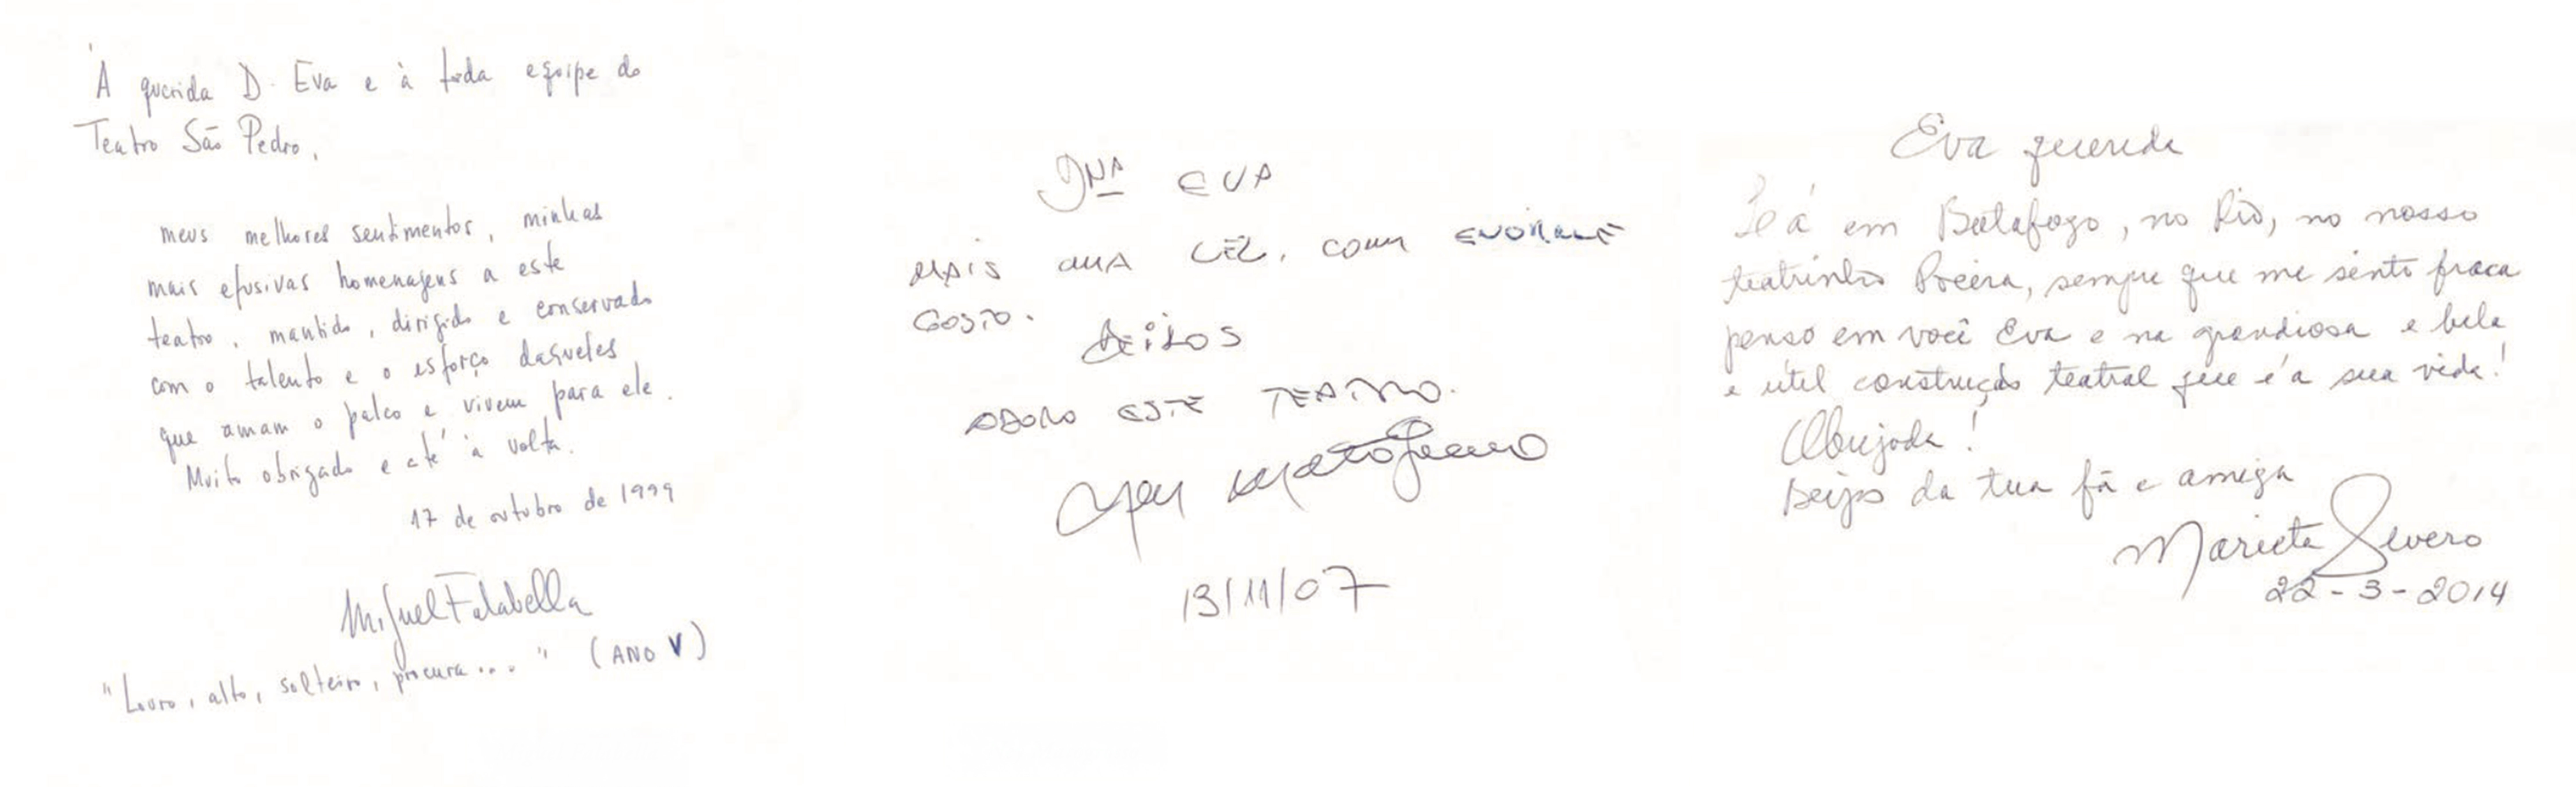 À querida D. Eva e à toda equipe do
Teatro São Pedro,
meus melhores sentimentos, minhas
mais efusivas homenagens a este
teatro, mantido, dirigido e conservado
com o talento e o esforço daqueles
que amam o palco e vivem para ele.
Muito obrigado e até à volta.
17 de outubro de 1999
Miguel Falabella
"Louro, alto, solteiro, procura..." (ANO V)
DNA EVA
MAIS UMA VEZ, COM ENORME
GOSTO.
BEIJOS
ADORO ESTE TEATRO.
Ney Matogrosso
13/11/07
Eva querida
Lá em Botafogo, no Rio, no nosso
teatrinho Poeira, sempre que me sinto fraca
penso em você Eva e na grandiosa e bela
e útil construção teatral que é a sua vida!
Obrigada!
Beijos da tua fã e amiga
Marieta Severo
22-3-2014